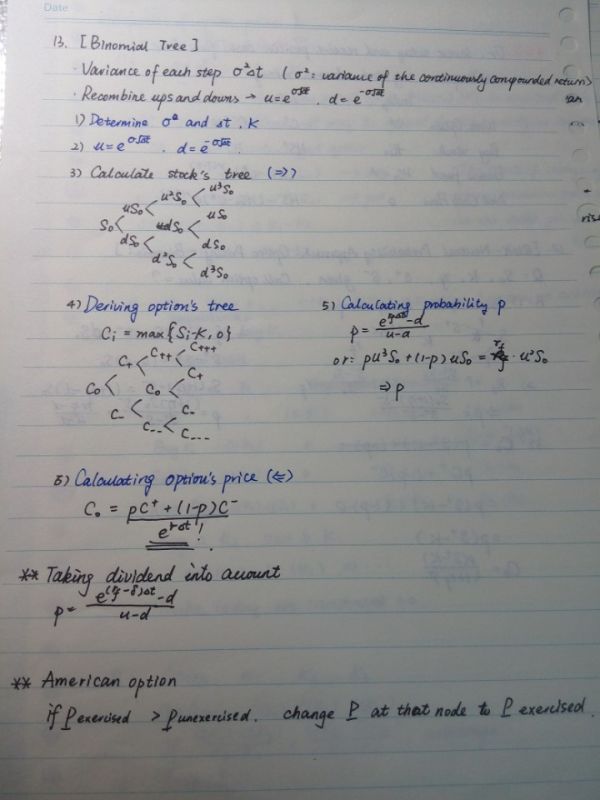 Date
13. [Binomial Tree]
· Variance of each step σ²Δt ( σ² = variance of the continuously compounded return)
· Recombine ups and downs → u = e^σ√Δt . d = e^-σ√Δt
1) Determine σ² and Δt . K
2) u = e^σ√Δt . d = e^-σ√Δt
3) Calculate stock's tree (⇒)
u³S₀
u²S₀
uS₀ uS₀
S₀ udS₀
dS₀ dS₀
d²S₀
d³S₀
4) Deriving option's tree
Cᵢ = max{Sᵢ-K, 0}
C+++
C++
C+ C+
C₀ C₀
C- C-
C--
C---
5) Calculating probability p
p = (e^rfΔt - d) / (u-d)
or: pu³S₀ + (1-p)uS₀ = rf · u²S₀
⇒ p
6) Calculating option's price (⇐)
C₀ = (pC⁺ + (1-p)C⁻) / e^rΔt !
** Taking dividend into account
p = (e^(rf-δ)Δt - d) / (u-d)
** American option
if P exercised > P unexercised. change P at that node to P exercised.